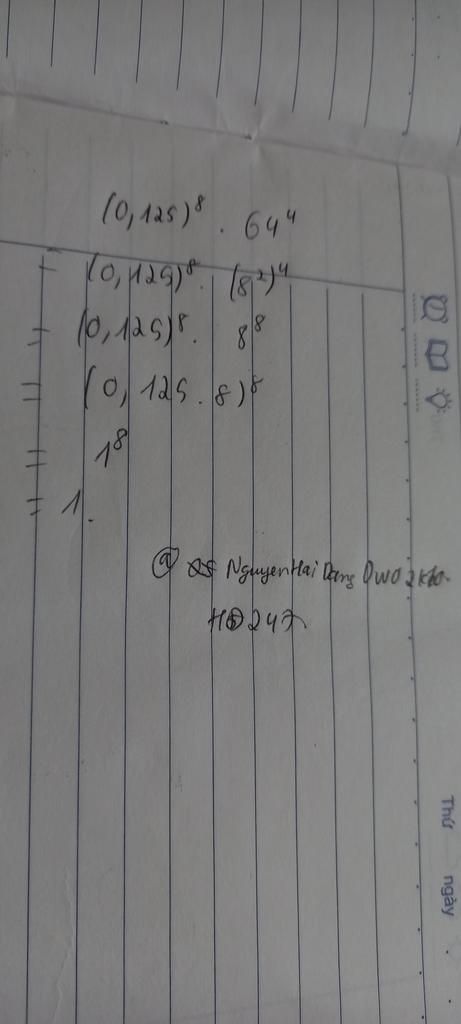 (0,125)⁸ . 64⁴
= (0,125)⁸ . (8²)⁴
= (0,125)⁸ . 8⁸
= (0, 125 . 8)⁸
= 1⁸
= 1.
@ NguyenHai Dang
HĐ247
Thứ ngày